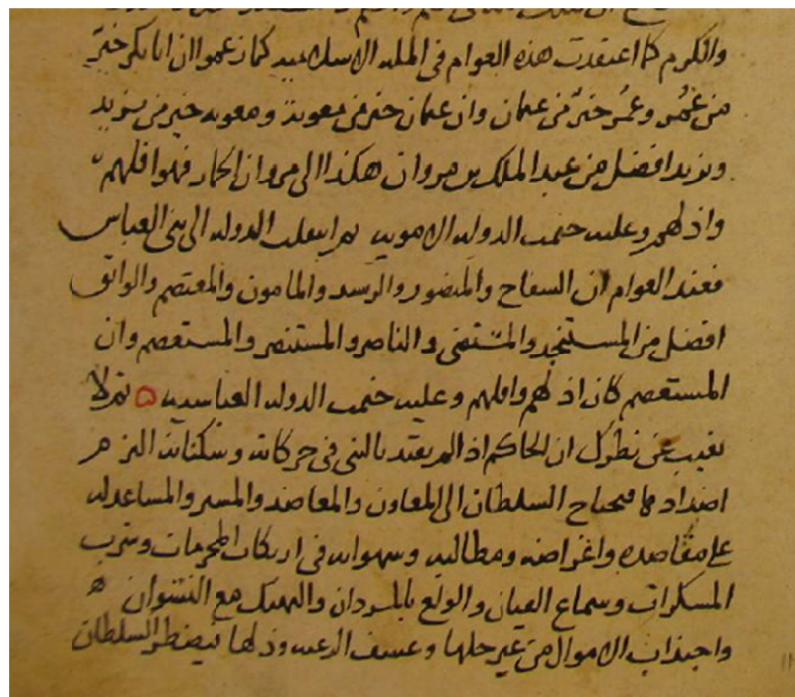 والكرم كما اعتقدت هذه العوام فى الملة الاسلامية كما زعموا ان ابا بكر خير
من عُمر وعمُر خيرٌ من عثمان وان عثمان خير من معوية ومعويه خير من يزيد
ويزيد افضل من عبد الملك بن مروان هكذا الى مروان الحمار فهو اقلهم
واذلهم وعليه ختمت الدوله الامويه ثم انتقلت الدوله الى بنى العباس
فعند العوام ان السفاح والمنصور والرشيد والمامون والمعتصم والواثق
افضل من المستنجد والمستضى والناصر والمستنصر والمستعصم وان
المستعصم كان اذلهم واقلهم وعليه ختمت الدوله العباسيه ثم لا
يغيب عن نظرك ان الحاكم اذا لم يقتد بالنبى فى حركاته وسكناته التزم
اضداد فيحتاج السلطان الى المعاون والمعاضد والمسير والمساعد له
على مقاصده واغراضه ومطالبه وشهواته فى ارتكاب المحرمات وشرب
المسكرات وسماع القيان والولع بالمردان والتهتك مع النسوان
واجتذاب الاموال من غير حلها وعسف الرعيه وذلها فيضطر السلطان